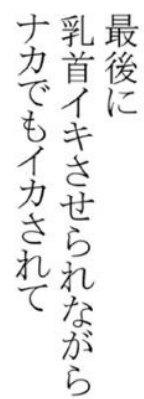 最後に
乳首イキさせられながら
ナカでもイカされて